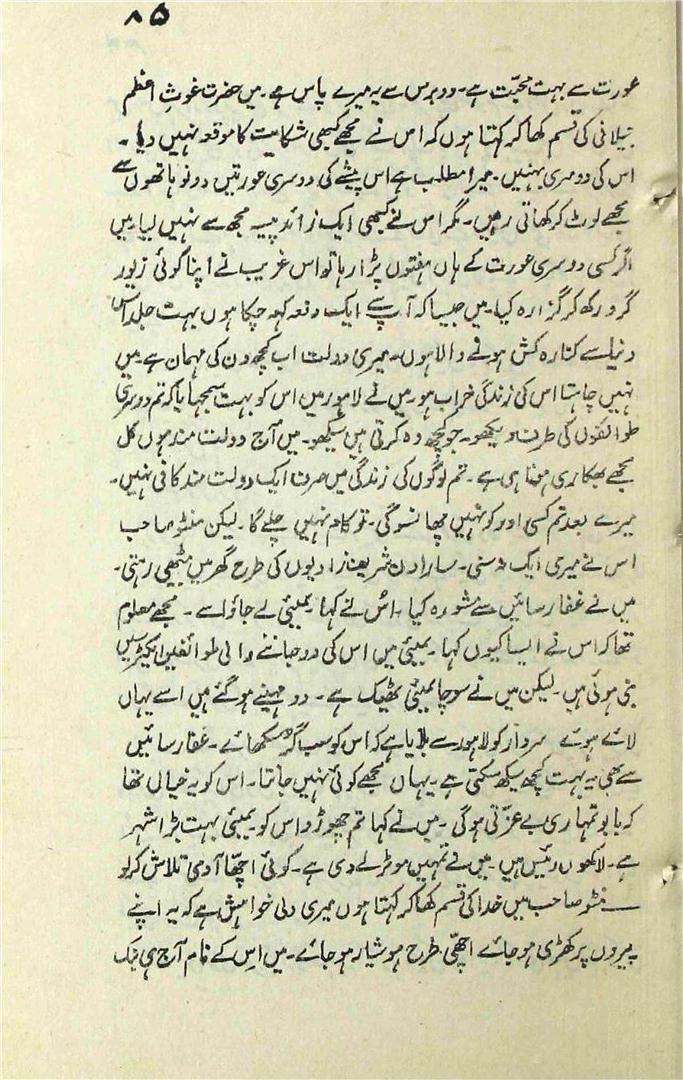 ۸۵
عورت سے بہت محبّت ہے۔ دو برس سے یہ میرے پاس ہے۔ میں حضرت غوثِ اعظم
جیلانی کی قسم کھا کر کہتا ہوں کہ اس نے مجھے کبھی شکایت کا موقعہ نہیں دیا۔
اس کی دوسری بہنیں۔ میرا مطلب ہے اس پیشے کی دوسری عورتیں دونو ہاتھوں سے
مجھے لوٹ کر کھاتی رہیں۔ مگر اس نے کبھی ایک زائد پیسہ مجھ سے نہیں لیا۔ میں
اگر کسی دوسری عورت کے ہاں ہفتوں پڑا رہا تو اس غریب نے اپنا کوئی زیور
گرو رکھ کر گزارہ کیا۔ میں جیسا کہ آپ سے ایک دفعہ کہہ چکا ہوں بہت جلد اس
دنیا سے کنارہ کش ہونے والا ہوں۔ میری دولت اب کچھ دن کی مہمان ہے۔ میں
نہیں چاہتا اس کی زندگی خراب ہو۔ میں نے لاہور میں اس کو بہت سمجھایا کہ تم دوسری
طوائفوں کی طرف دیکھو۔ جو کچھ وہ کرتی ہیں سیکھو۔ میں آج دولت مند ہوں کل
مجھے بھکاری ہونا ہی ہے۔ تم لوگوں کی زندگی میں صرف ایک دولت مند کافی نہیں۔
میرے بعد تم کسی اور کو نہیں پھانسو گی۔ تو کام نہیں چلے گا۔ لیکن منٹو صاحب
اس نے میری ایک نہ سنی۔ سارا دن شریف زادیوں کی طرح گھر میں بیٹھی رہتی۔
میں نے غفار سائیں سے مشورہ کیا۔ اُس نے کہا بمبئی لے جاؤ اسے۔ مجھے معلوم
تھا کہ اس نے ایسا کیوں کہا۔ بمبئی میں اس کی دو جاننے والی طوائفیں ایکٹرسیں
بنی ہوئی ہیں۔ لیکن میں نے سوچا بمبئی ٹھیک ہے۔ دو مہینے ہو گئے ہیں اسے یہاں
لائے ہوئے سردار کو لاہور سے بلایا ہے کہ اس کو سب گُر سکھائے۔ غفار سائیں
سے بھی یہ بہت کچھ سیکھ سکتی ہے۔ یہاں مجھے کوئی نہیں جانتا۔ اس کو یہ خیال تھا
کہ بابو تمہاری بے عزّتی ہو گی۔ میں نے کہا تم چھوڑو اس کو۔ بمبئی بہت بڑا شہر
ہے۔ لاکھوں رئیس ہیں۔ میں نے تمہیں موٹر لے دی ہے۔ کوئی اچھّا آدمی تلاش کر لو
ــــ منٹو صاحب میں خدا کی قسم کھا کر کہتا ہوں میری دلی خواہش ہے کہ یہ اپنے
پیروں پر کھڑی ہو جائے اچھّی طرح ہوشیار ہو جائے۔ میں اس کے نام آج ہی بنک